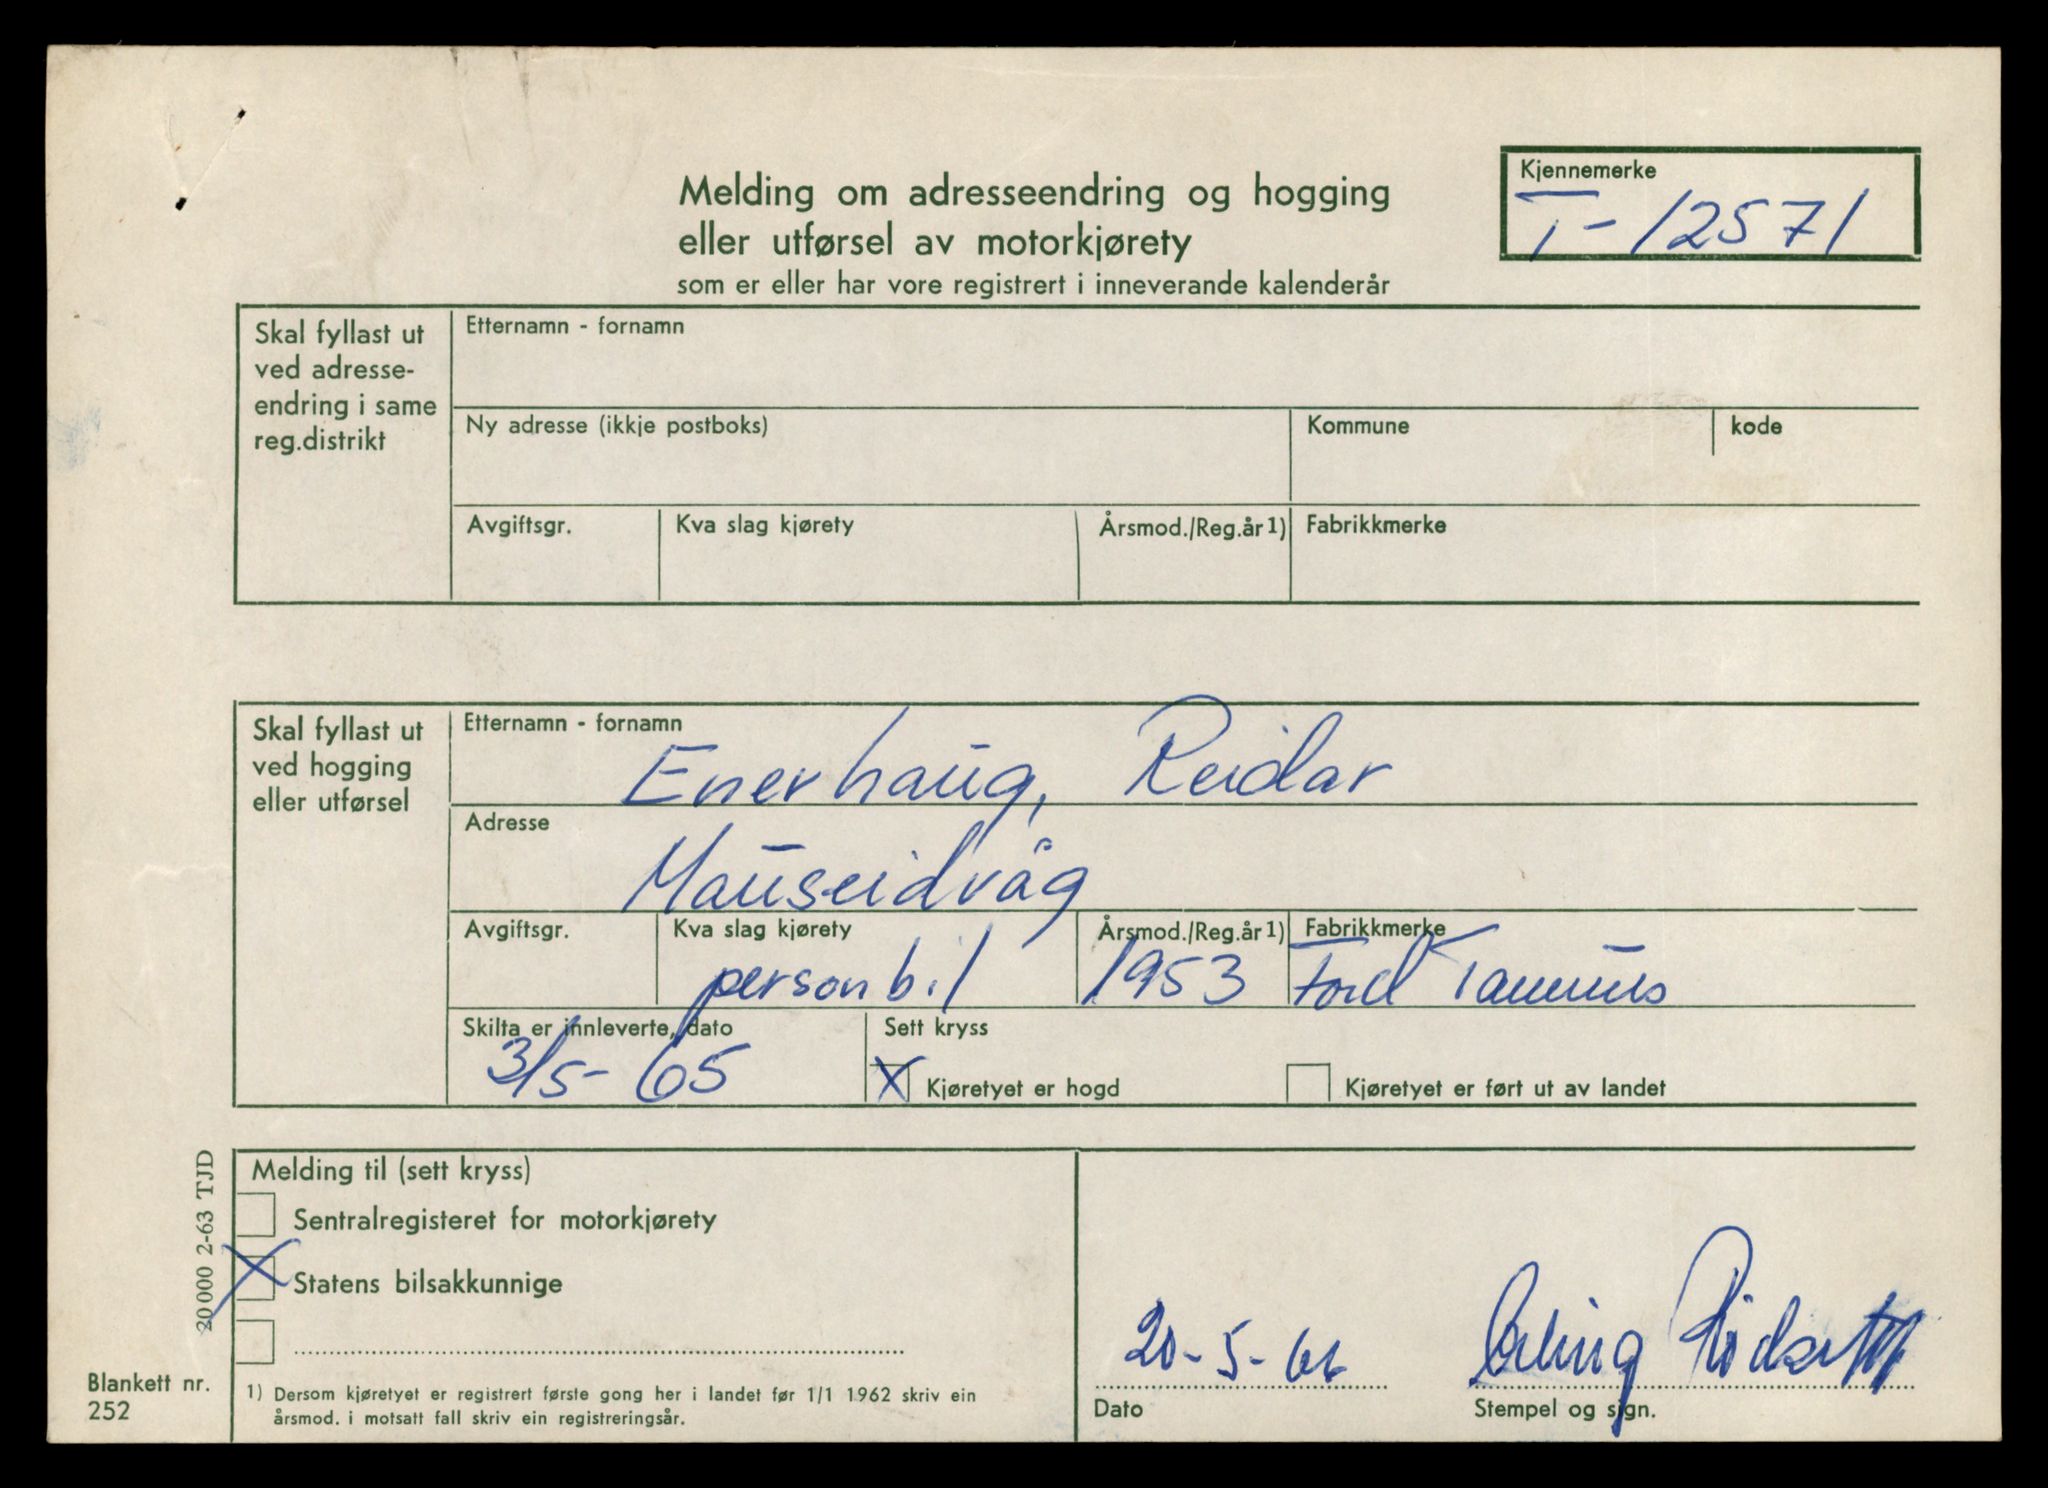 Kjennemerke
T-12571
Melding om adresseendring og hogging
eller utførsel av motorkjørety
som er eller har vore registrert i inneverande kalenderår
Skal fyllast ut
ved adresse-
endring i same
reg.distrikt
Etternamn - fornamn
Ny adresse (ikkje postboks)
Kommune
kode
Avgiftsgr.
Kva slag kjørety
Årsmod./Reg.år 1)
Fabrikkmerke
Skal fyllast ut
ved hogging
eller utførsel
Etternamn - fornamn
Enerhaug, Reidar
Adresse
Mauseidvåg
Avgiftsgr.
Kva slag kjørety
personbil
Årsmod./Reg.år 1)
1953
Fabrikkmerke
Ford Taunus
Skilta er innleverte, dato
3/5-65
Sett kryss
X Kjøretyet er hogd
Kjøretyet er ført ut av landet
Melding til (sett kryss)
Sentralregisteret for motorkjørety
X Statens bilsakkunnige
20 000 2-63 TJD
Blankett nr.
252
1) Dersom kjøretyet er registrert første gong her i landet før 1/1 1962 skriv ein
årsmod. i motsatt fall skriv ein registreringsår.
20-5-66
Dato
Erling
Stempel og sign.